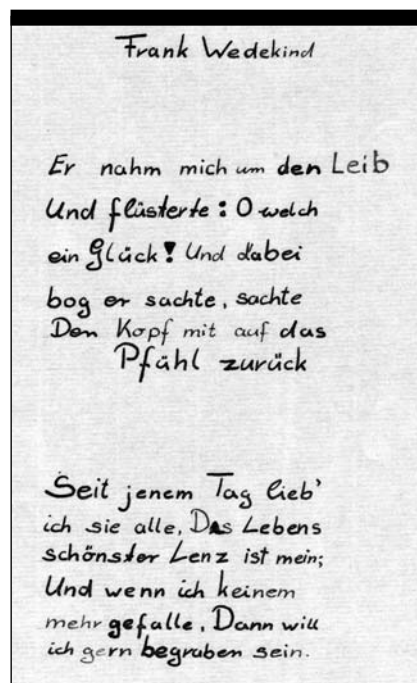 Frank Wedekind
Er nahm mich um den Leib
Und flüsterte: O welch
ein Glück! Und dabei
bog er sachte, sachte
Den Kopf mit auf das
Pfühl zurück
Seit jenem Tag lieb'
ich sie alle, Des Lebens
schönster Lenz ist mein;
Und wenn ich keinem
mehr gefalle, Dann will
ich gern begraben sein.